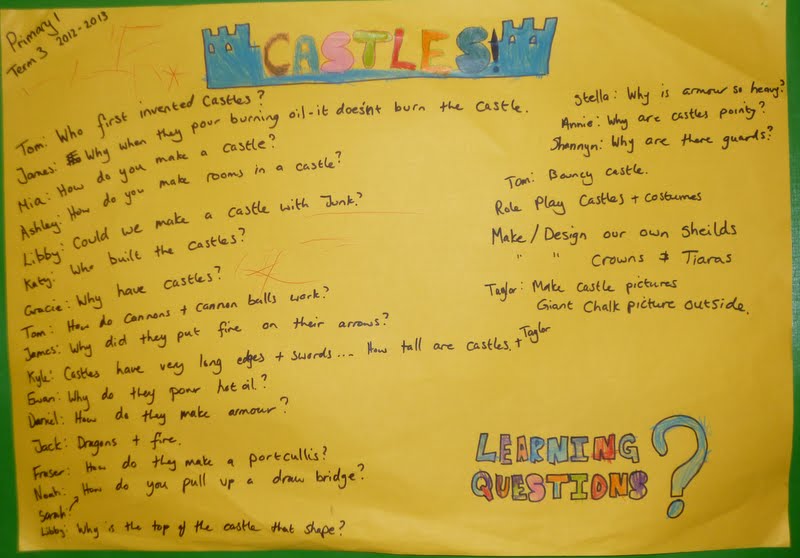 Primary 1
Term 3 2012-2013
CASTLES!
Tom: Who first invented Castles?
James: Why when they pour burning oil - it doesn't burn the castle.
Mia: How do you make a castle?
Ashley: How do you make rooms in a castle?
Libby: Could we make a castle with Junk?
Katy: Who built the castles?
Gracie: Why have castles?
Tom: How do cannons + cannon balls work?
James: Why did they put fire on their arrows?
Kyle: Castles have very long edges + swords... How tall are castles. + Taylor
Ewan: Why do they pour hot oil?
Daniel: How do they make armour?
Jack: Dragons + fire.
Fraser: How do they make a portcullis?
Noah: How do you pull up a draw bridge?
Sarah
Libby: Why is the top of the castle that shape?
Stella: Why is armour so heavy?
Annie: Why are castles pointy?
Shannyn: Why are there guards?
Tom: Bouncy castle.
Role Play Castles + costumes
Make/Design our own Sheilds
" " Crowns & Tiaras
Taylor: Make castle pictures
Giant Chalk picture outside.
LEARNING
QUESTIONS ?